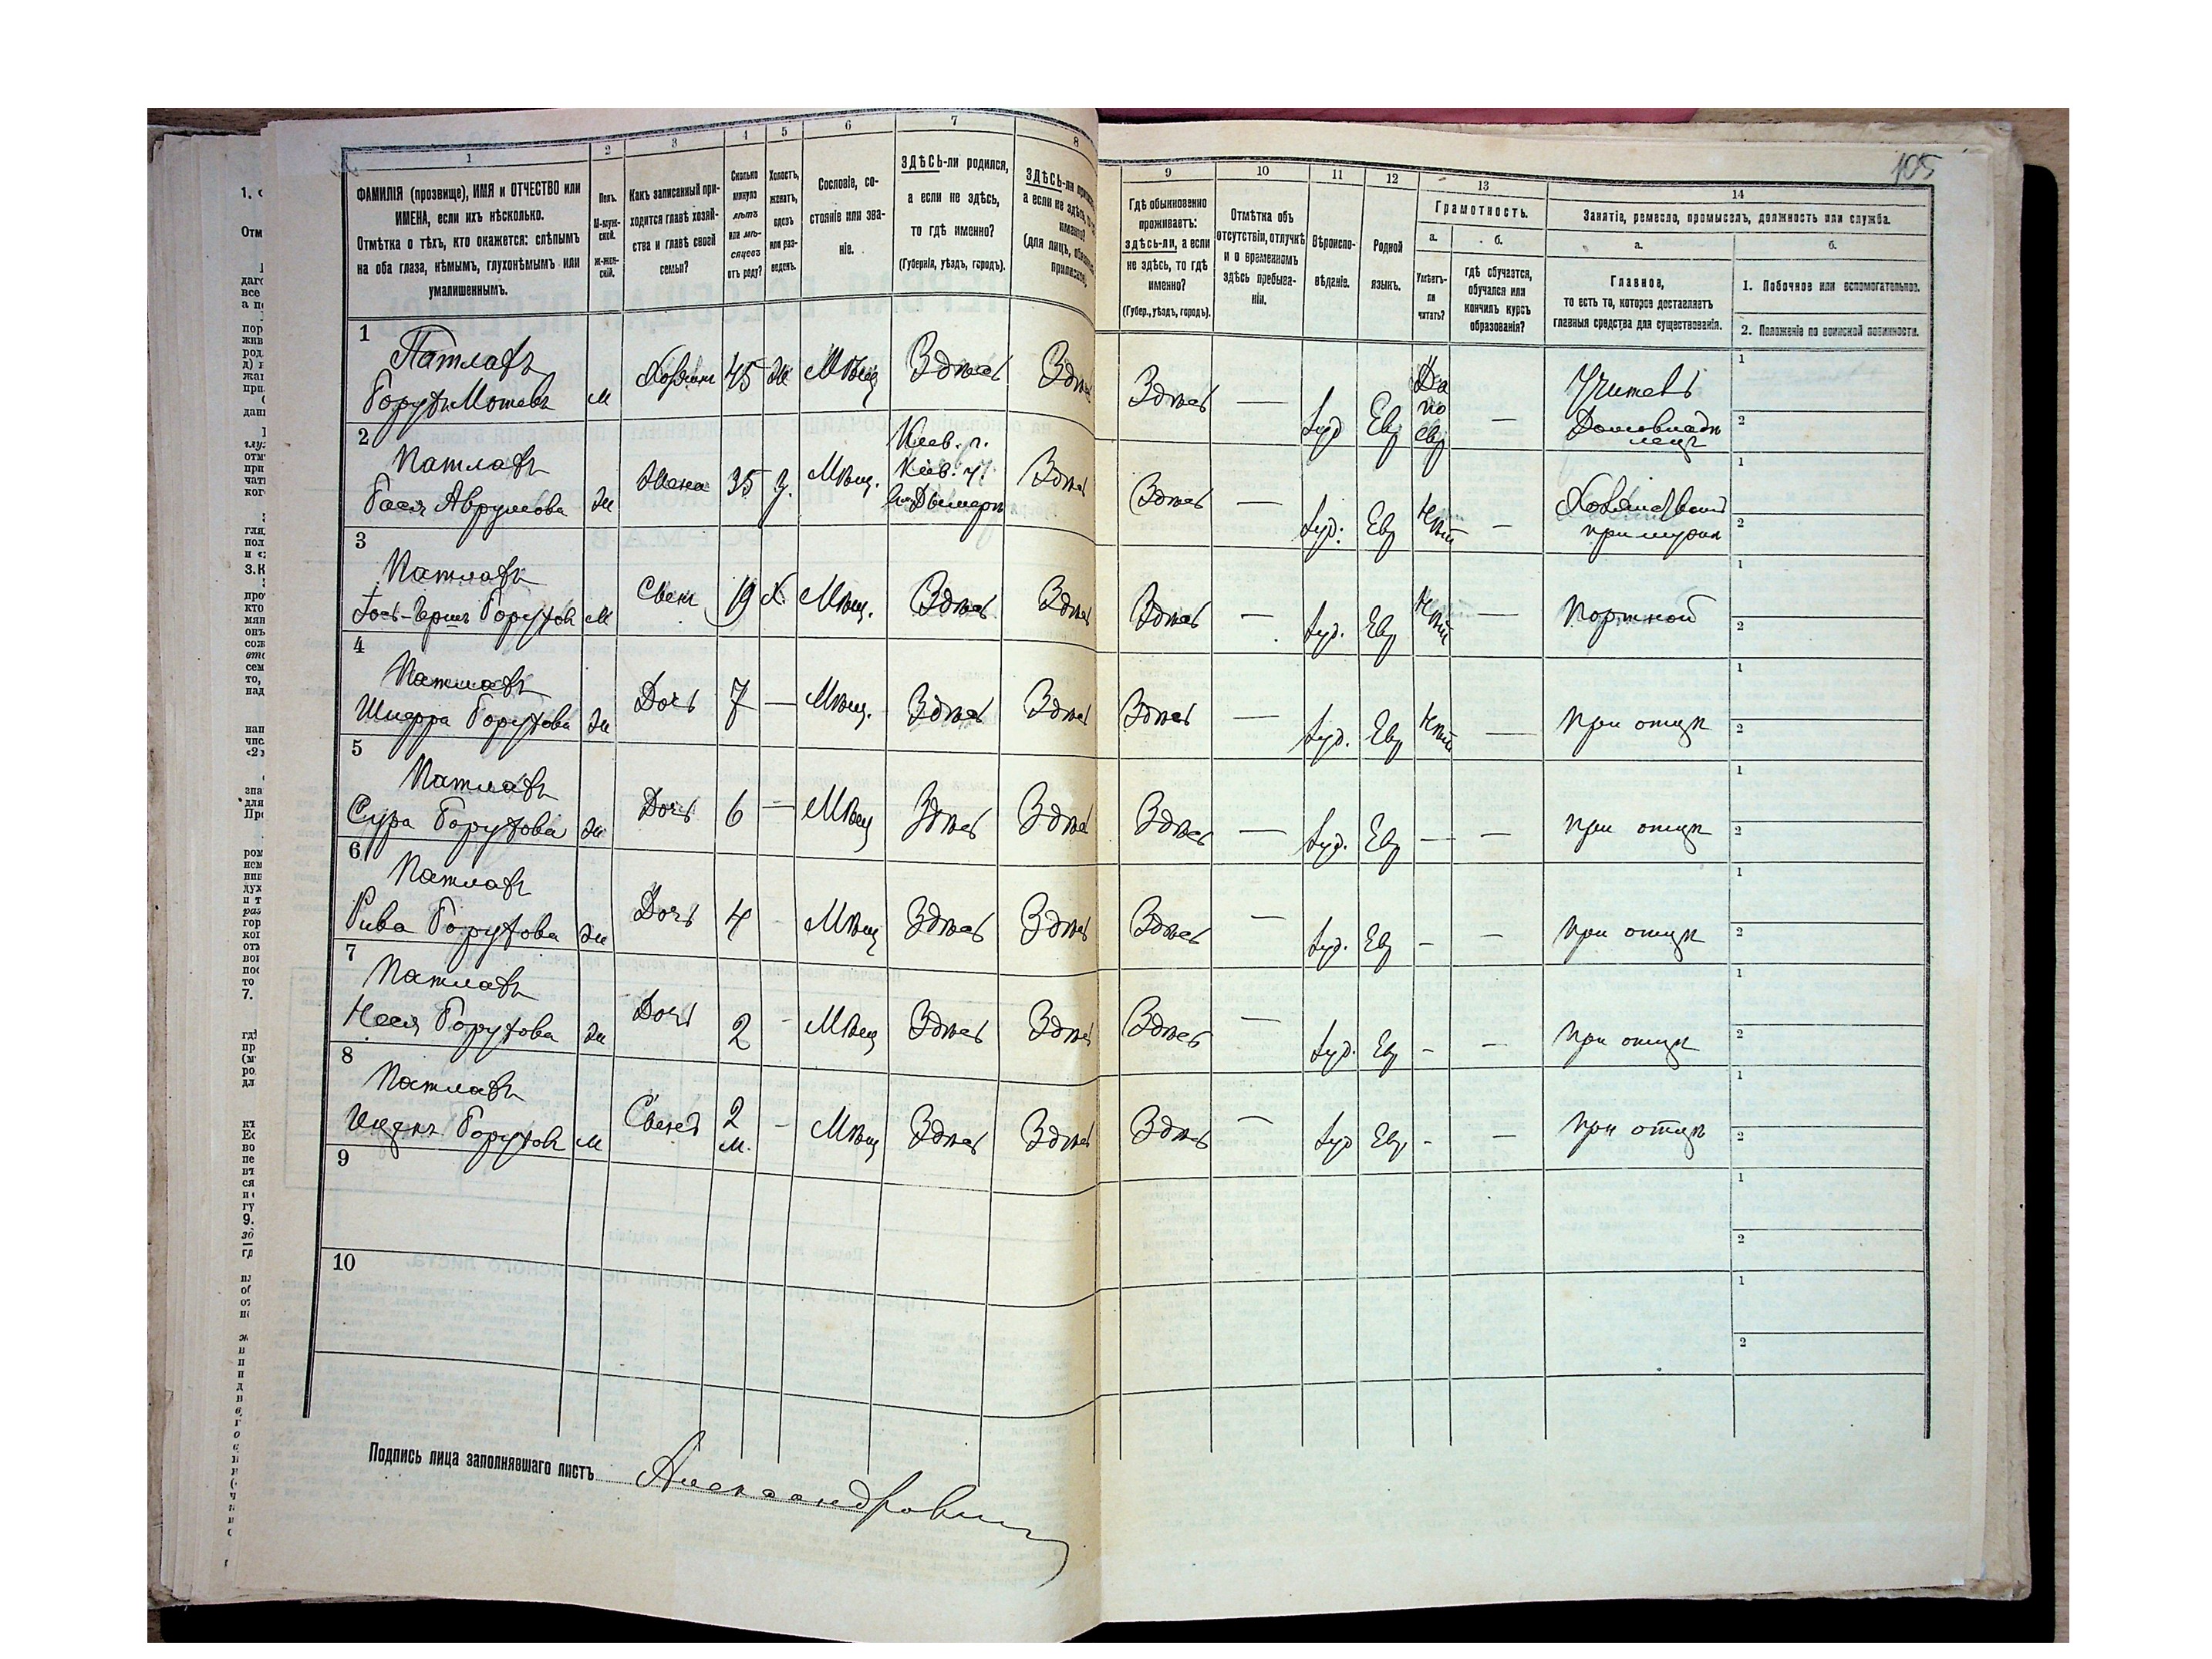 105
1 2 3 4 5 6 7 8 9 10 11 12 13 14
ФАМИЛІЯ (прозвище), ИМЯ и ОТЧЕСТВО или
ИМЕНА, если ихъ нѣсколько.
Отмѣтка о тѣхъ, кто окажется: слѣпымъ
на оба глаза, нѣмымъ, глухонѣмымъ или
умалишеннымъ.
Полъ.
М-муж-
ской.
Ж-жен-
скій.
Какъ записанный при-
ходится главѣ хозяй-
ства и главѣ своей
семьи?
Сколько
минуло
лѣтъ
или мѣ-
сяцевъ
отъ роду?
Холостъ,
женатъ,
вдовъ
или раз-
веденъ.
Сословіе, со-
стояніе или зва-
ніе.
ЗДѢСЬ-ли родился,
а если не здѣсь,
то гдѣ именно?
(Губернія, уѣздъ, городъ).
ЗДѢСЬ-ли
а если не здѣсь,
именно?
(для лицъ,
Гдѣ обыкновенно
проживаетъ:
здѣсь-ли, а если
не здѣсь, то гдѣ
именно?
(Губер., уѣздъ, городъ).
Отмѣтка объ
отсутствіи, отлучкѣ
и о временномъ
здѣсь пребыва-
ніи.
Вѣроиспо-
вѣданіе.
Родной
языкъ.
Грамотность.
а. б.
Умѣетъ-
ли
читать?
гдѣ обучается,
обучался или
кончилъ курсъ
образованія?
Занятіе, ремесло, промыселъ, должность или служба.
а. б.
Главное,
то есть то, которое доставляетъ
главныя средства для существованія.
1. Побочное или вспомогательное.
2. Положеніе по воинской повинности.
1
Патлахъ
Борухъ Мошевъ М Хозяинъ 45 Ж Мѣщ Здѣсь Здѣсь Здѣсь — Іуд Евр Да по евр — Учитель Домовладѣлецъ
2
Патлахъ
Бася Аврумова Ж Жена 35 З. Мѣщ. Кіев. г. Кіев. у. Дымеръ Здѣсь Здѣсь — Іуд. Евр Нѣтъ — при мужѣ
3
Патлахъ
Борухов М Сынъ 19 Х. Мѣщ. Здѣсь Здѣсь Здѣсь — Іуд. Евр Нѣтъ — Портной
4
Патлахъ
Шифра Борухова Ж Дочь 7 — Мѣщ. Здѣсь Здѣсь Здѣсь — Іуд. Евр Нѣтъ — При отцѣ
5
Патлахъ
Сура Борухова Ж Дочь 6 — Мѣщ Здѣсь Здѣсь Здѣсь — Іуд. Евр — — При отцѣ
6
Патлахъ
Рива Борухова Ж Дочь 4 - Мѣщ Здѣсь Здѣсь Здѣсь — Іуд. Евр - — При отцѣ
7
Патлахъ
Нося Борухова Ж Дочь 2 - Мѣщ Здѣсь Здѣсь Здѣсь — Іуд. Евр - — При отцѣ
8
Патлахъ
Борухов М Сынъ 2 м. - Мѣщ Здѣсь Здѣсь Здѣсь — Іуд Евр - — При отцѣ
9
10
Подпись лица заполнявшаго листъ Александрович